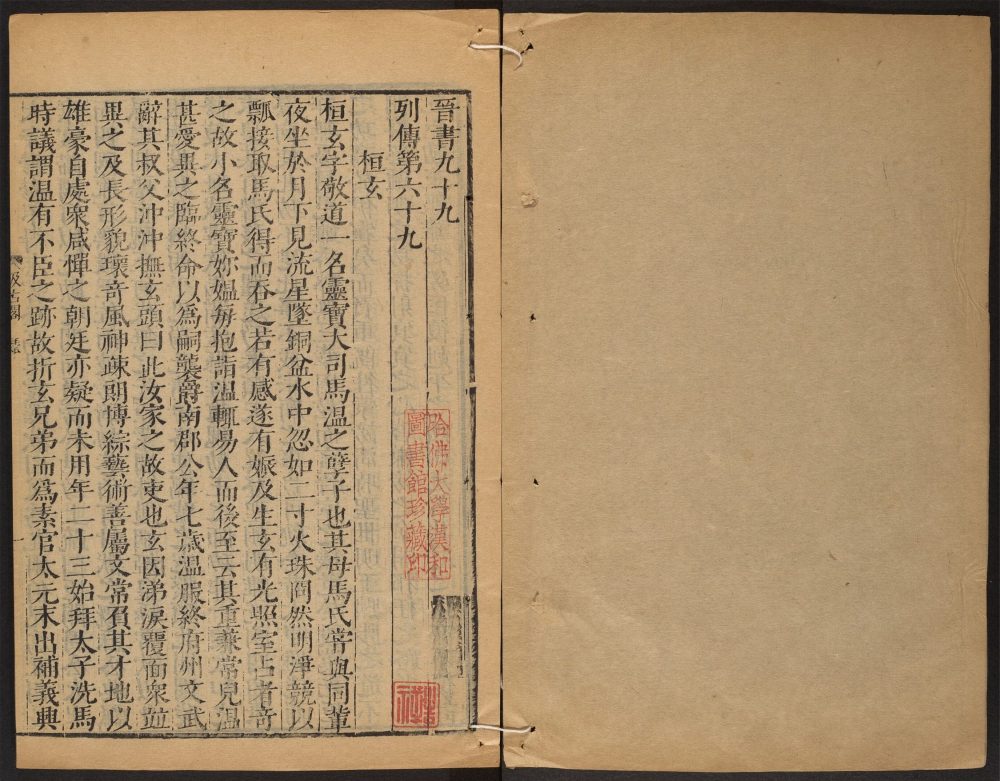 晉書九十九
列傳第六十九
桓玄
桓玄字敬道一名靈寶大司馬溫之孽子也其母馬氏嘗與同輩
夜坐於月下見流星墜銅盆水中忽如二寸火珠冏然明淨競以
瓢接取馬氏得而吞之若有感遂有娠及生玄有光照室占者奇
之故小名靈寶妳媼每抱詣溫輒易人而後至云其重兼常兒溫
甚愛異之臨終命以爲嗣襲爵南郡公年七歲溫服終府州文武
辭其叔父沖沖撫玄頭曰此汝家之故吏也玄因涕淚覆面衆並
異之及長形貌瓌奇風神疎朗博綜藝術善屬文常負其才地以
雄豪自處衆咸憚之朝廷亦疑而未用年二十三始拜太子洗馬
時議謂溫有不臣之跡故折玄兄弟而爲素官太元末出補義興
哈佛大學漢和
圖書館珍藏印